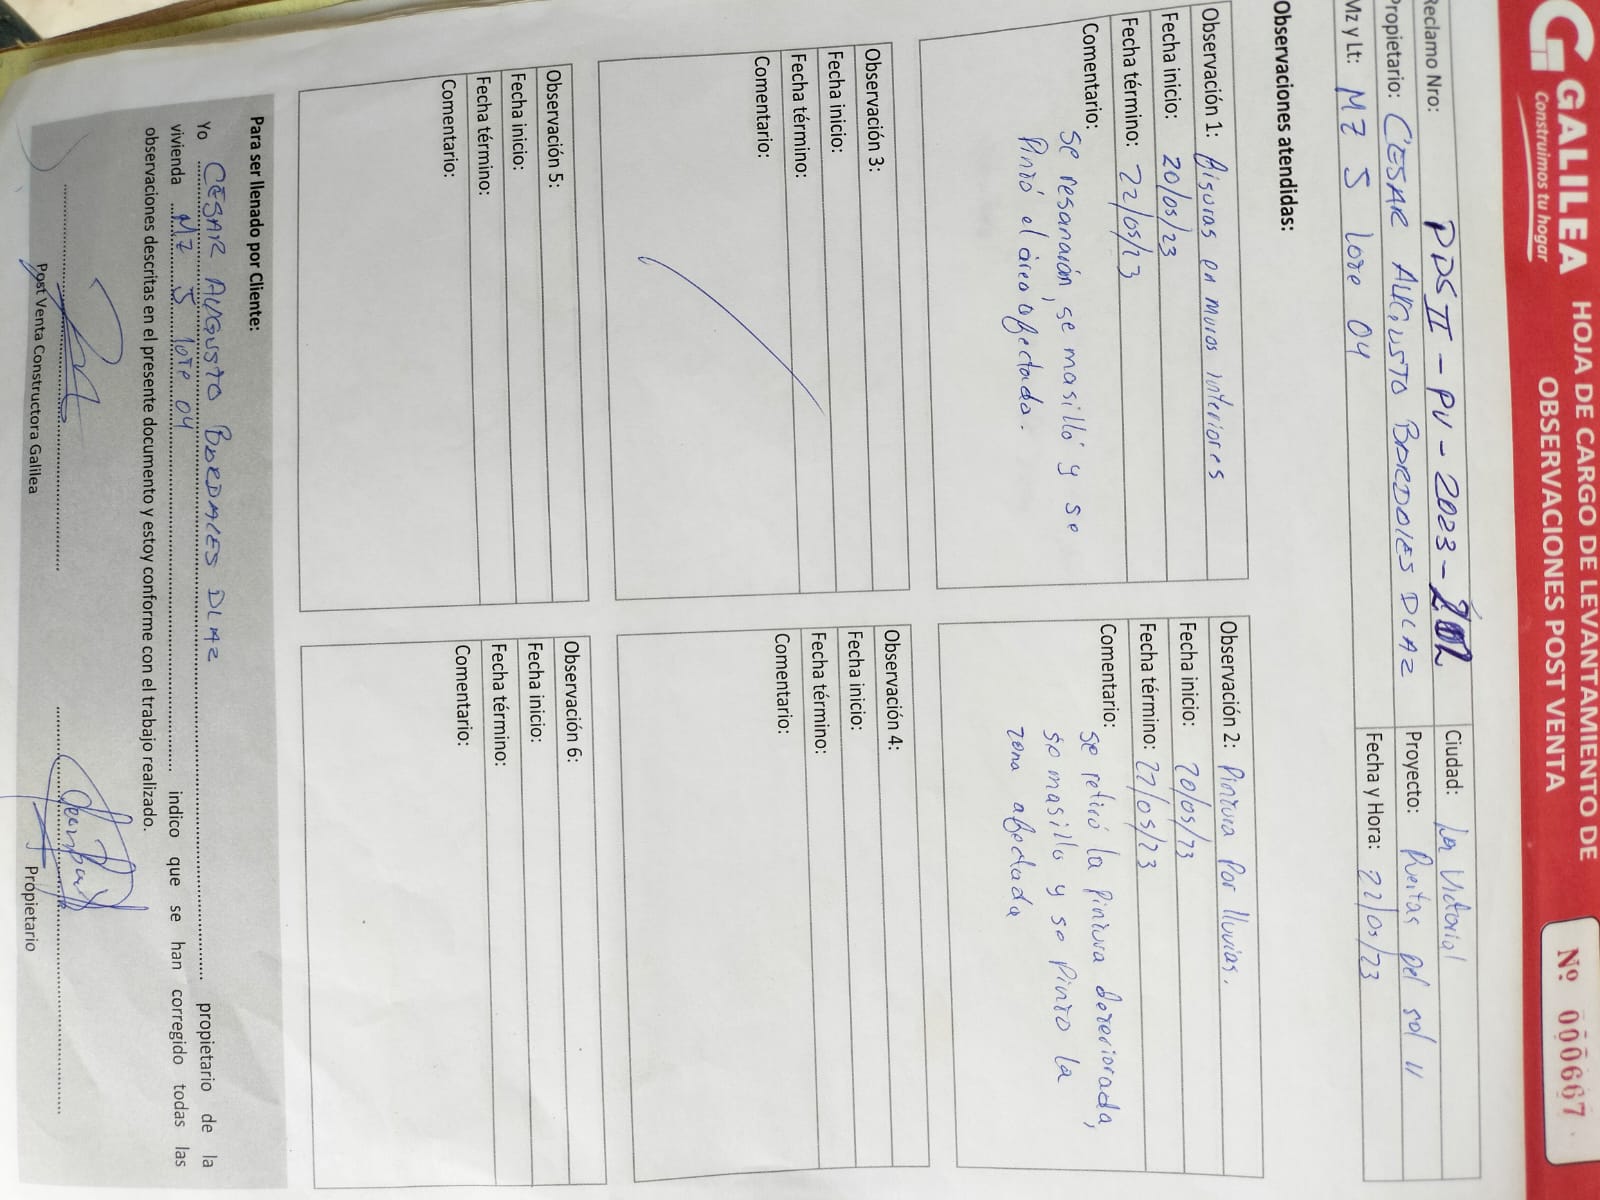 GALILEA
Construimos tu hogar
HOJA DE CARGO DE LEVANTAMIENTO DE
OBSERVACIONES POST VENTA
Nº 000667
Reclamo Nro: PDS II - PV - 2023 -
Ciudad: La Victoria
Propietario: CESAR AUGUSTO BARDALES DIAZ
Proyecto: del sol II
Mz y Lt: MZ J lote 04
Fecha y Hora: 22/05/23
Observaciones atendidas:
Observación 1: Fisuras en muros interiores
Fecha inicio: 20/05/23
Fecha término: 22/05/23
Comentario:
Se resanaron, se masilló y se
Pintó el área afectada.
Observación 2: Pintura Por lluvias.
Fecha inicio: 20/05/23
Fecha término: 22/05/23
Comentario:
Se retiró la Pintura deteriorada,
se masillo y se Pinto la
zona afectada
Observación 3:
Fecha inicio:
Fecha término:
Comentario:
Observación 4:
Fecha inicio:
Fecha término:
Comentario:
Observación 5:
Fecha inicio:
Fecha término:
Comentario:
Observación 6:
Fecha inicio:
Fecha término:
Comentario:
Para ser llenado por Cliente:
Yo CESAR AUGUSTO BARDALES DIAZ propietario de la
vivienda MZ J lote 04 indico que se han corregido todas las
observaciones descritas en el presente documento y estoy conforme con el trabajo realizado.
Post Venta Constructora Galilea
Propietario